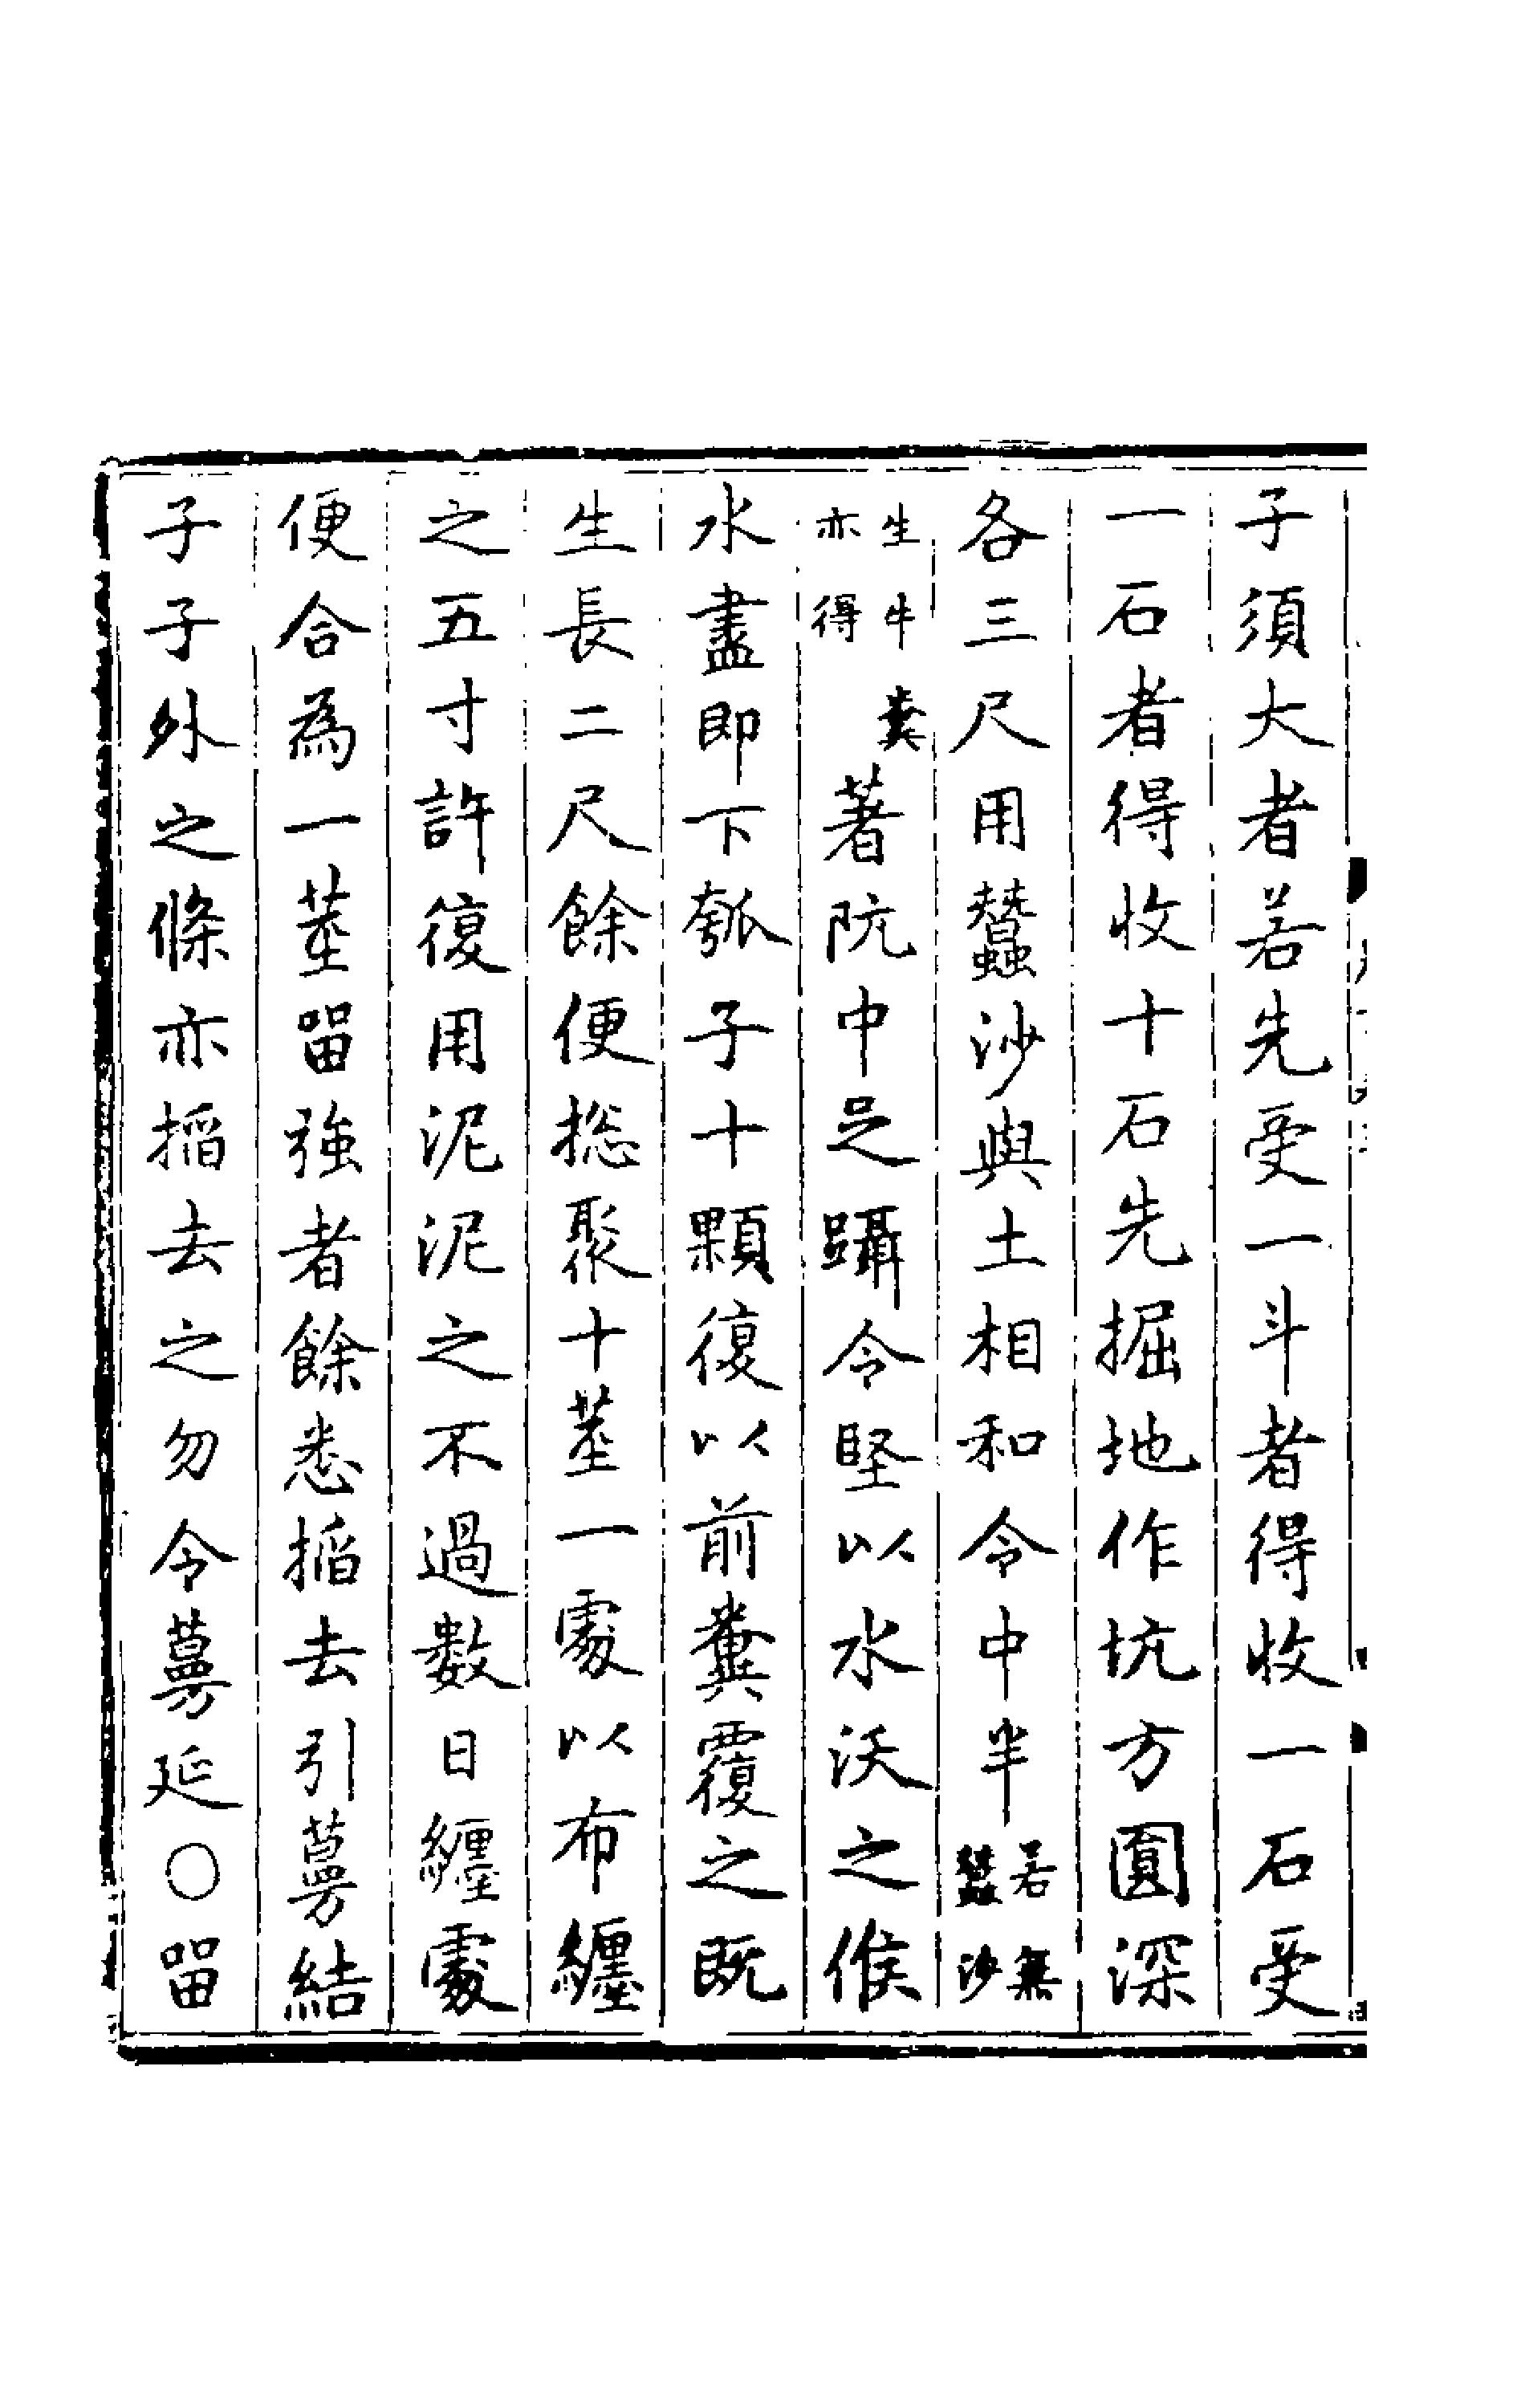 子須大者若先受一斗者得收一石受
一石者得收十石先掘地作坑方圓深
各三尺用蠶沙與土相和令中半若無蠶沙
生牛糞亦得著阬中足躡令堅以水沃之候
水盡即下瓠子十顆復以前糞覆之既
生長二尺餘便捴聚十莖一處以布纏
之五寸許復用泥泥之不過數日纏處
便合為一莖畱強者餘悉搯去引蔓結
子子外之條亦搯去之勿令蔓延○畱